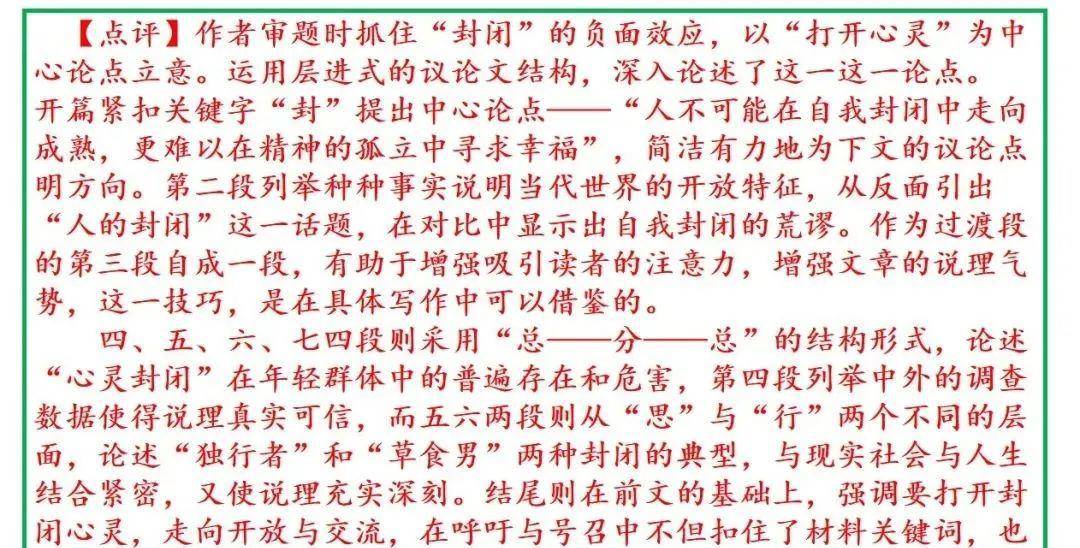 【点评】作者审题时抓住“封闭”的负面效应，以“打开心灵”为中
心论点立意。运用层进式的议论文结构，深入论述了这一这一论点。
开篇紧扣关键字“封”提出中心论点——“人不可能在自我封闭中走向
成熟，更难以在精神的孤立中寻求幸福”，简洁有力地为下文的议论点
明方向。第二段列举种种事实说明当代世界的开放特征，从反面引出
“人的封闭”这一话题，在对比中显示出自我封闭的荒谬。作为过渡段
的第三段自成一段，有助于增强吸引读者的注意力，增强文章的说理气
势，这一技巧，是在具体写作中可以借鉴的。
四、五、六、七四段则采用“总——分——总”的结构形式，论述
“心灵封闭”在年轻群体中的普遍存在和危害，第四段列举中外的调查
数据使得说理真实可信，而五六两段则从“思”与“行”两个不同的层
面，论述“独行者”和“草食男”两种封闭的典型，与现实社会与人生
结合紧密，又使说理充实深刻。结尾则在前文的基础上，强调要打开封
闭心灵，走向开放与交流，在呼吁与号召中不但扣住了材料关键词，也